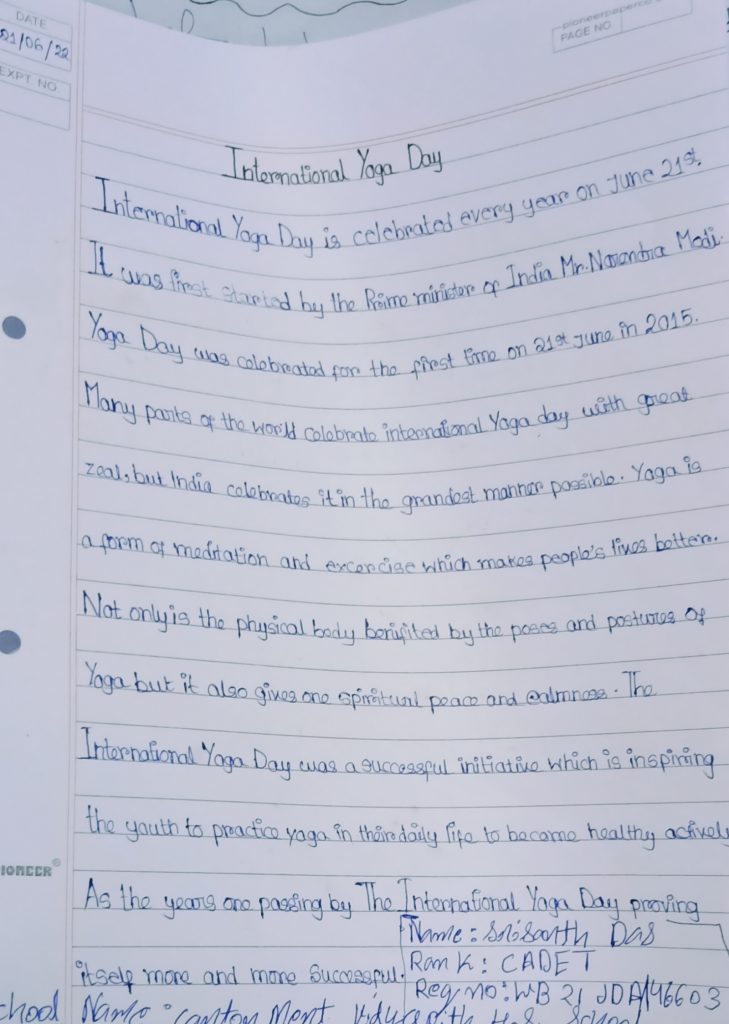 DATE
21/06/22
EXPT. NO
pioneerpaperco
PAGE NO
International Yoga Day
International Yoga Day is celebrated every year on June 21st.
It was first started by the Prime minister of India Mr. Narendra Modi.
Yoga Day was celebrated for the first time on 21st June in 2015.
Many parts of the world celebrate international Yoga day with great
zeal, but India celebrates it in the grandest manner possible. Yoga is
a form of meditation and excercise which makes people's lives better.
Not only is the physical body benifited by the poses and postures of
Yoga but it also gives one spiritual peace and calmness. The
International Yoga Day was a successful initiative which is inspiring
the youth to practice yoga in their daily life to become healthy actively
PIONEER®
As the years are passing by The International Yoga Day proving
itself more and more successful.
Name: Srisanth Das
Rank: CADET
Reg no: WB 21 JDA146603
chool Name: Cantonment H.S. School